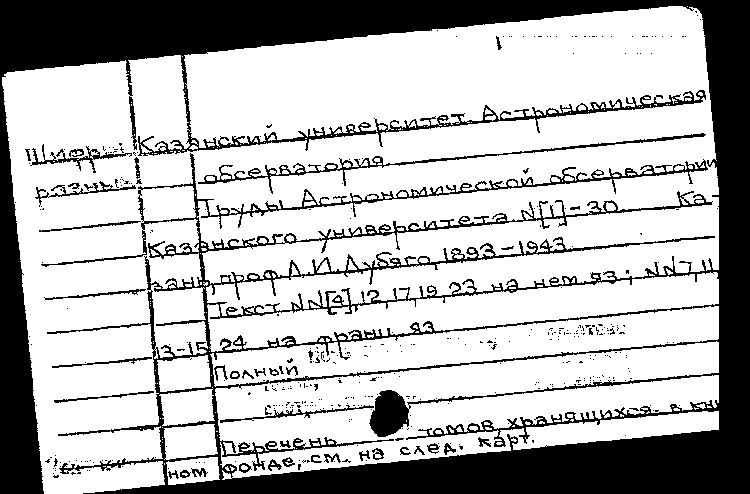 Шифры Казанский университет. Астрономическая
разные обсерватория.
Труды Астрономической обсерватории
Казанского университета. N[1]-30. Ка-
зань, проф. Л.И. Дубяго, 1893-1943.
Текст NN[4], 12, 17, 19, 23 на нем. яз; NN7, 11,
13-15, 24 на франц. яз.
Полный
Перечень томов, хранящихся в кни
ном фонде, см. на след. карт.